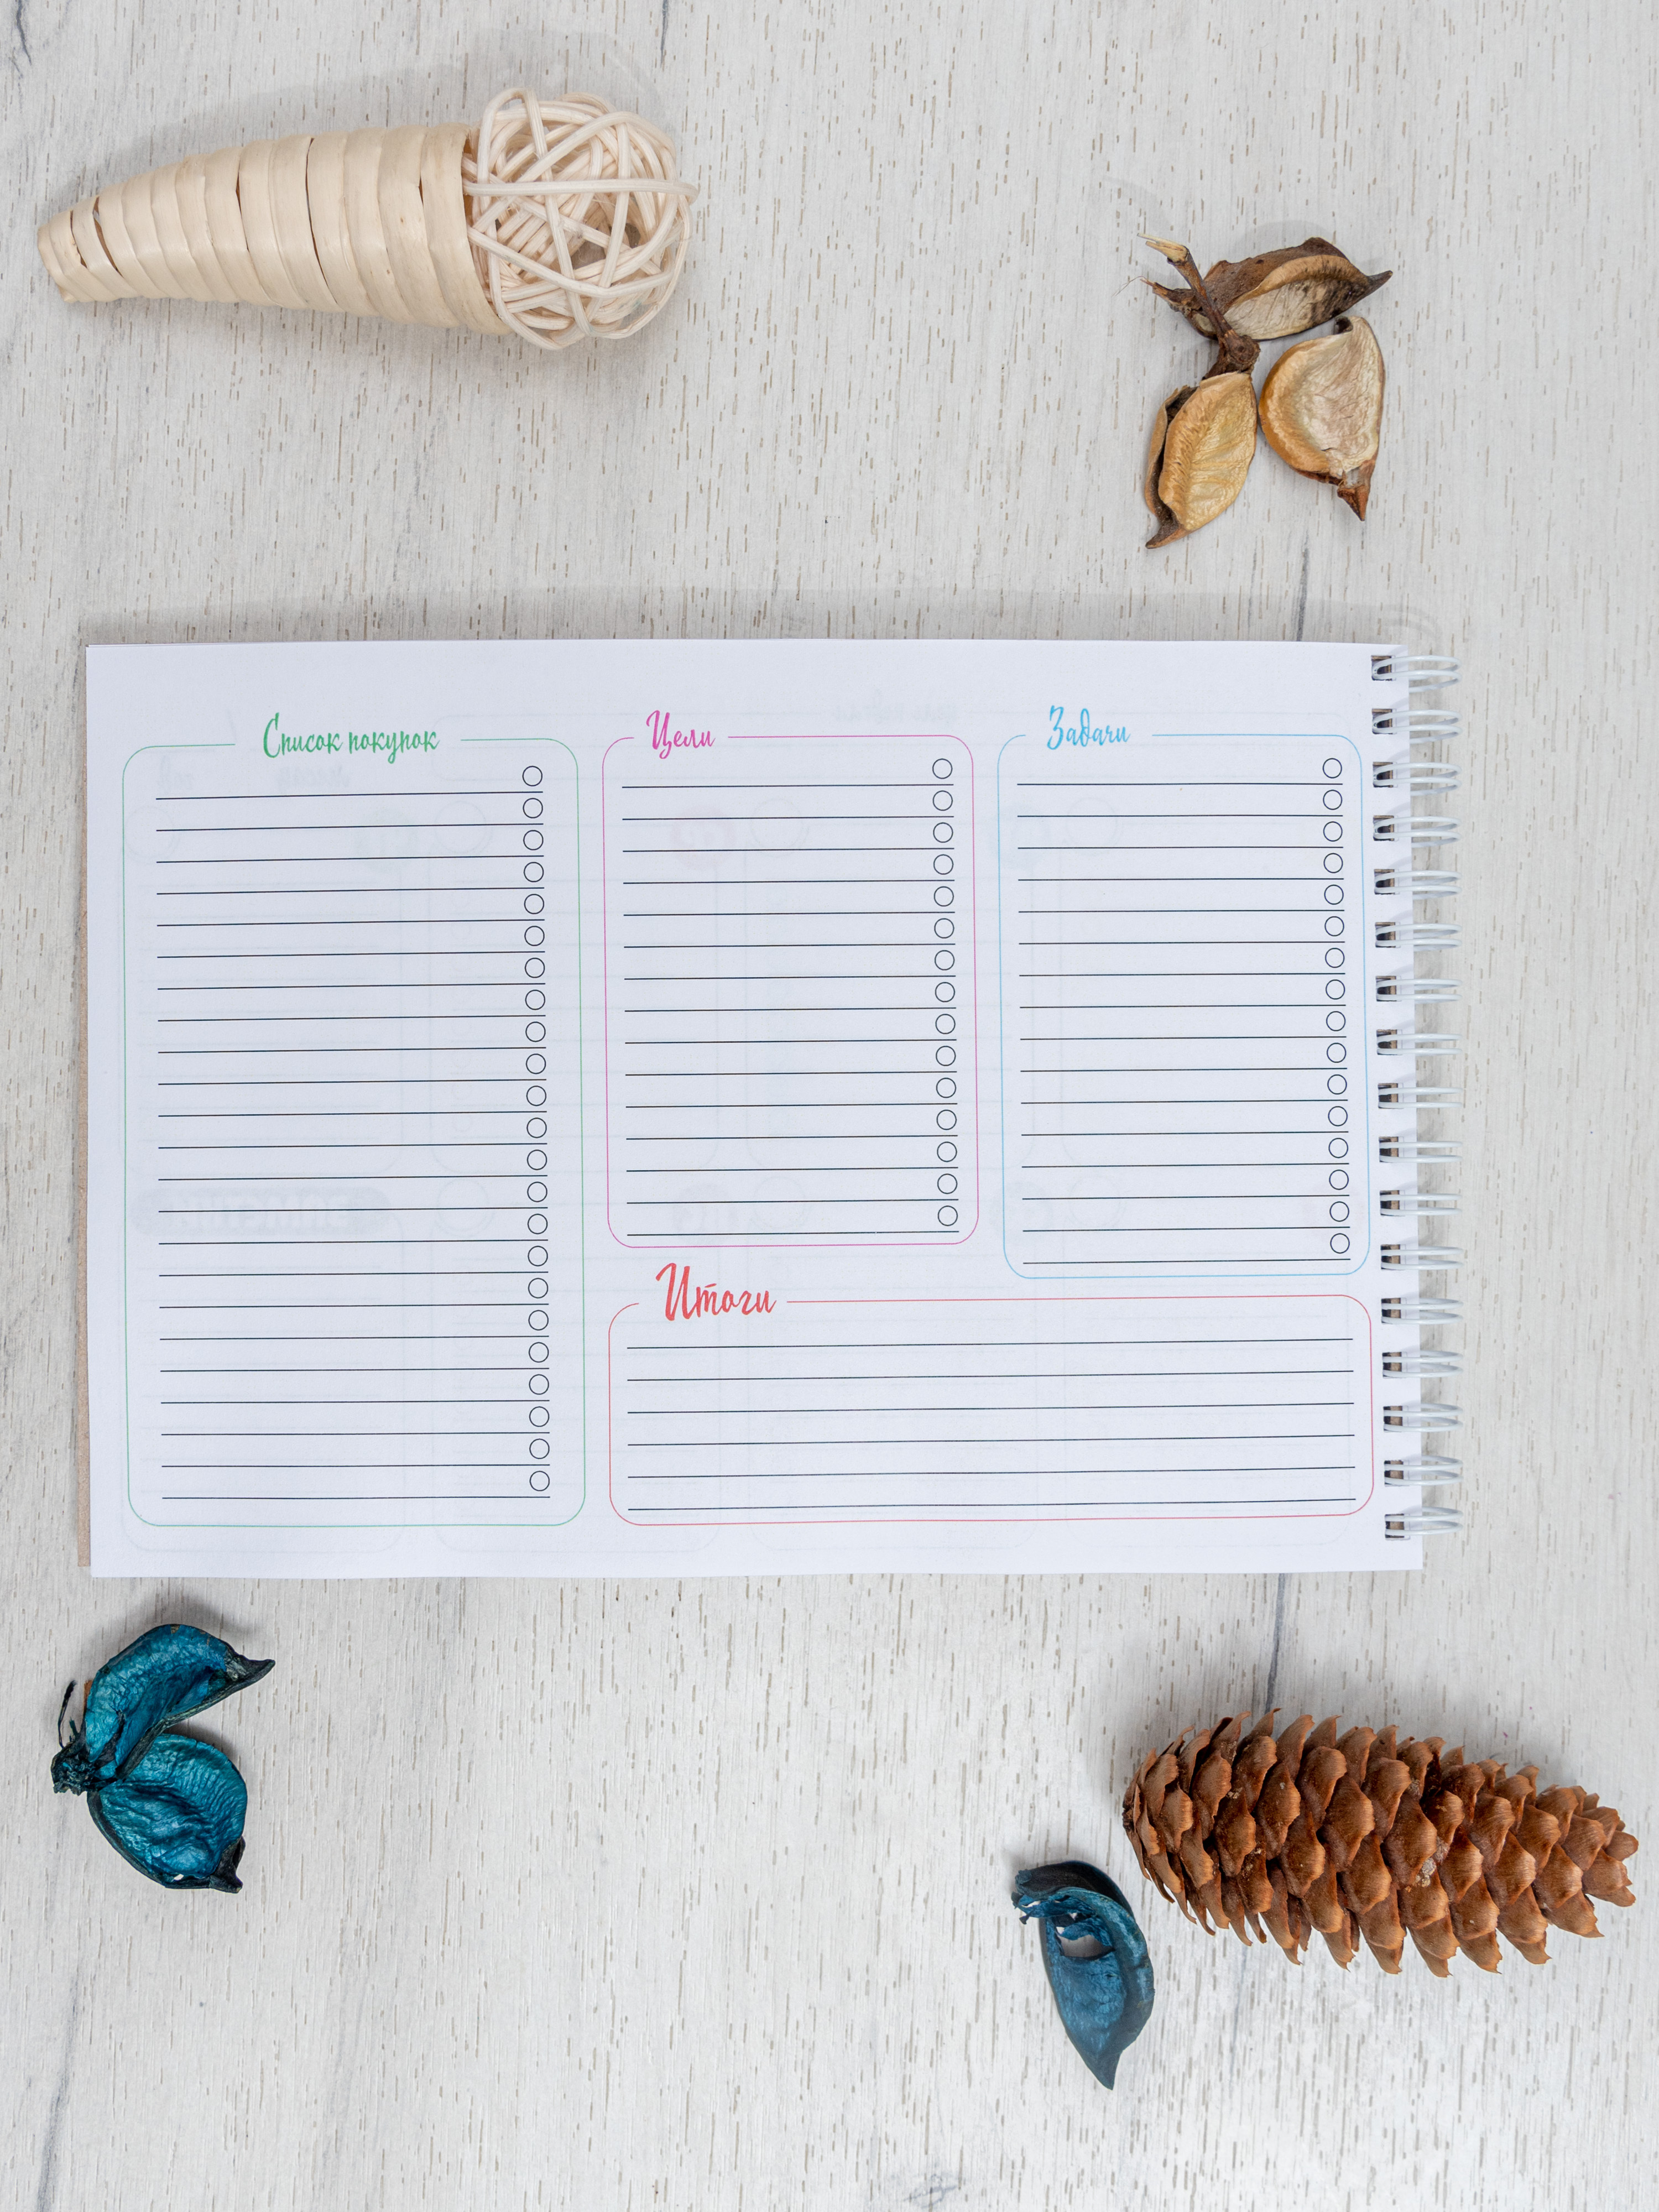 Список покупок
Цели
Задачи
Итоги